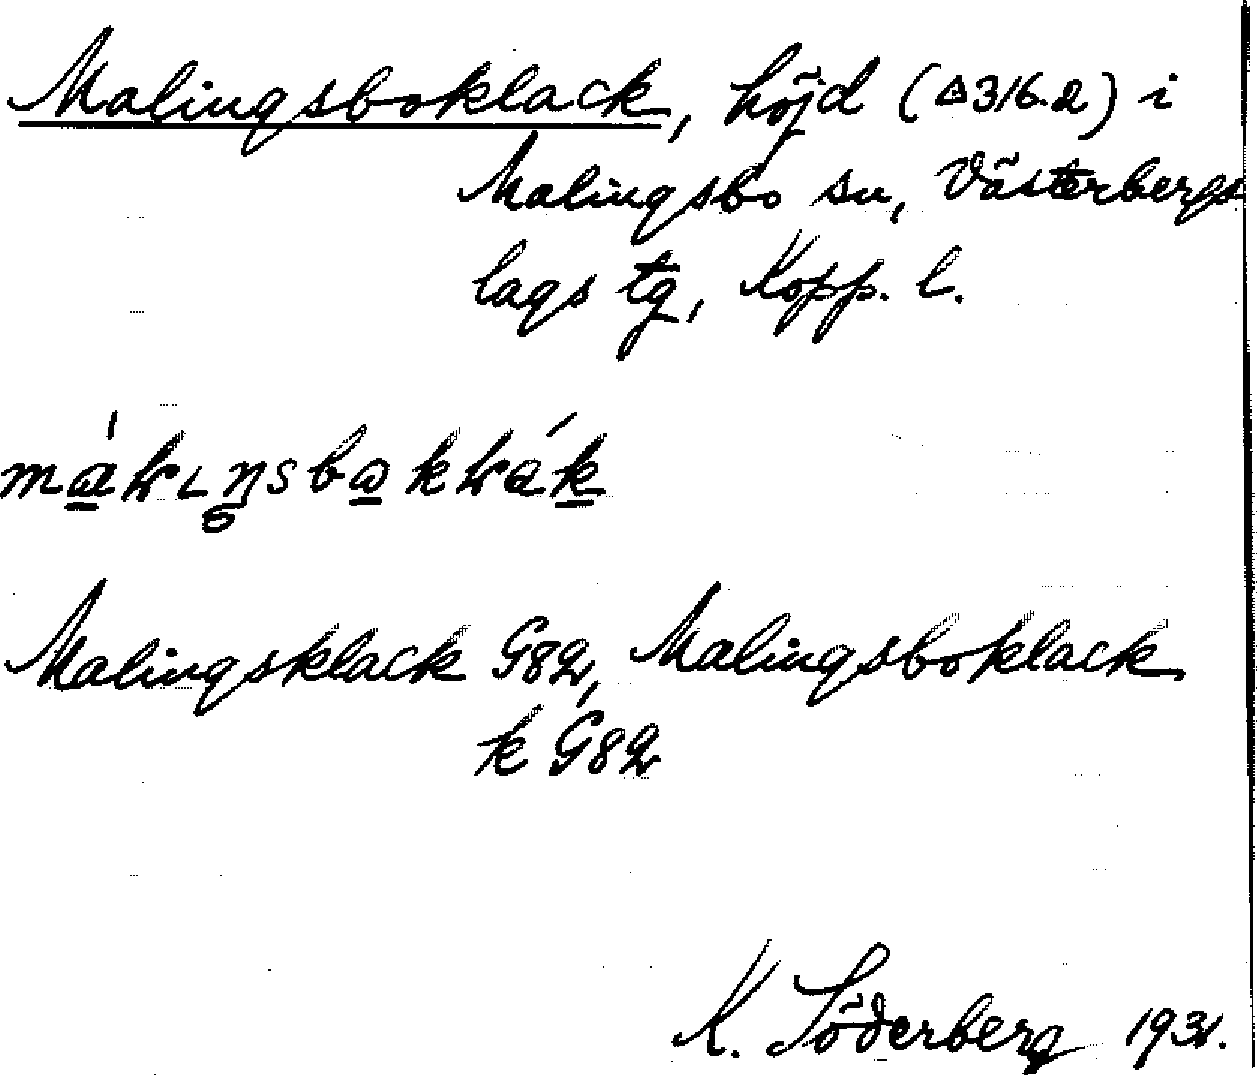 Malingsboklack, höjd (△316.2) i
Malingsbo sn, Västerbergs
lags tg, Kopp. l.
Malingsklack G82, Malingsboklack
k G82
K. Söderberg 1931.